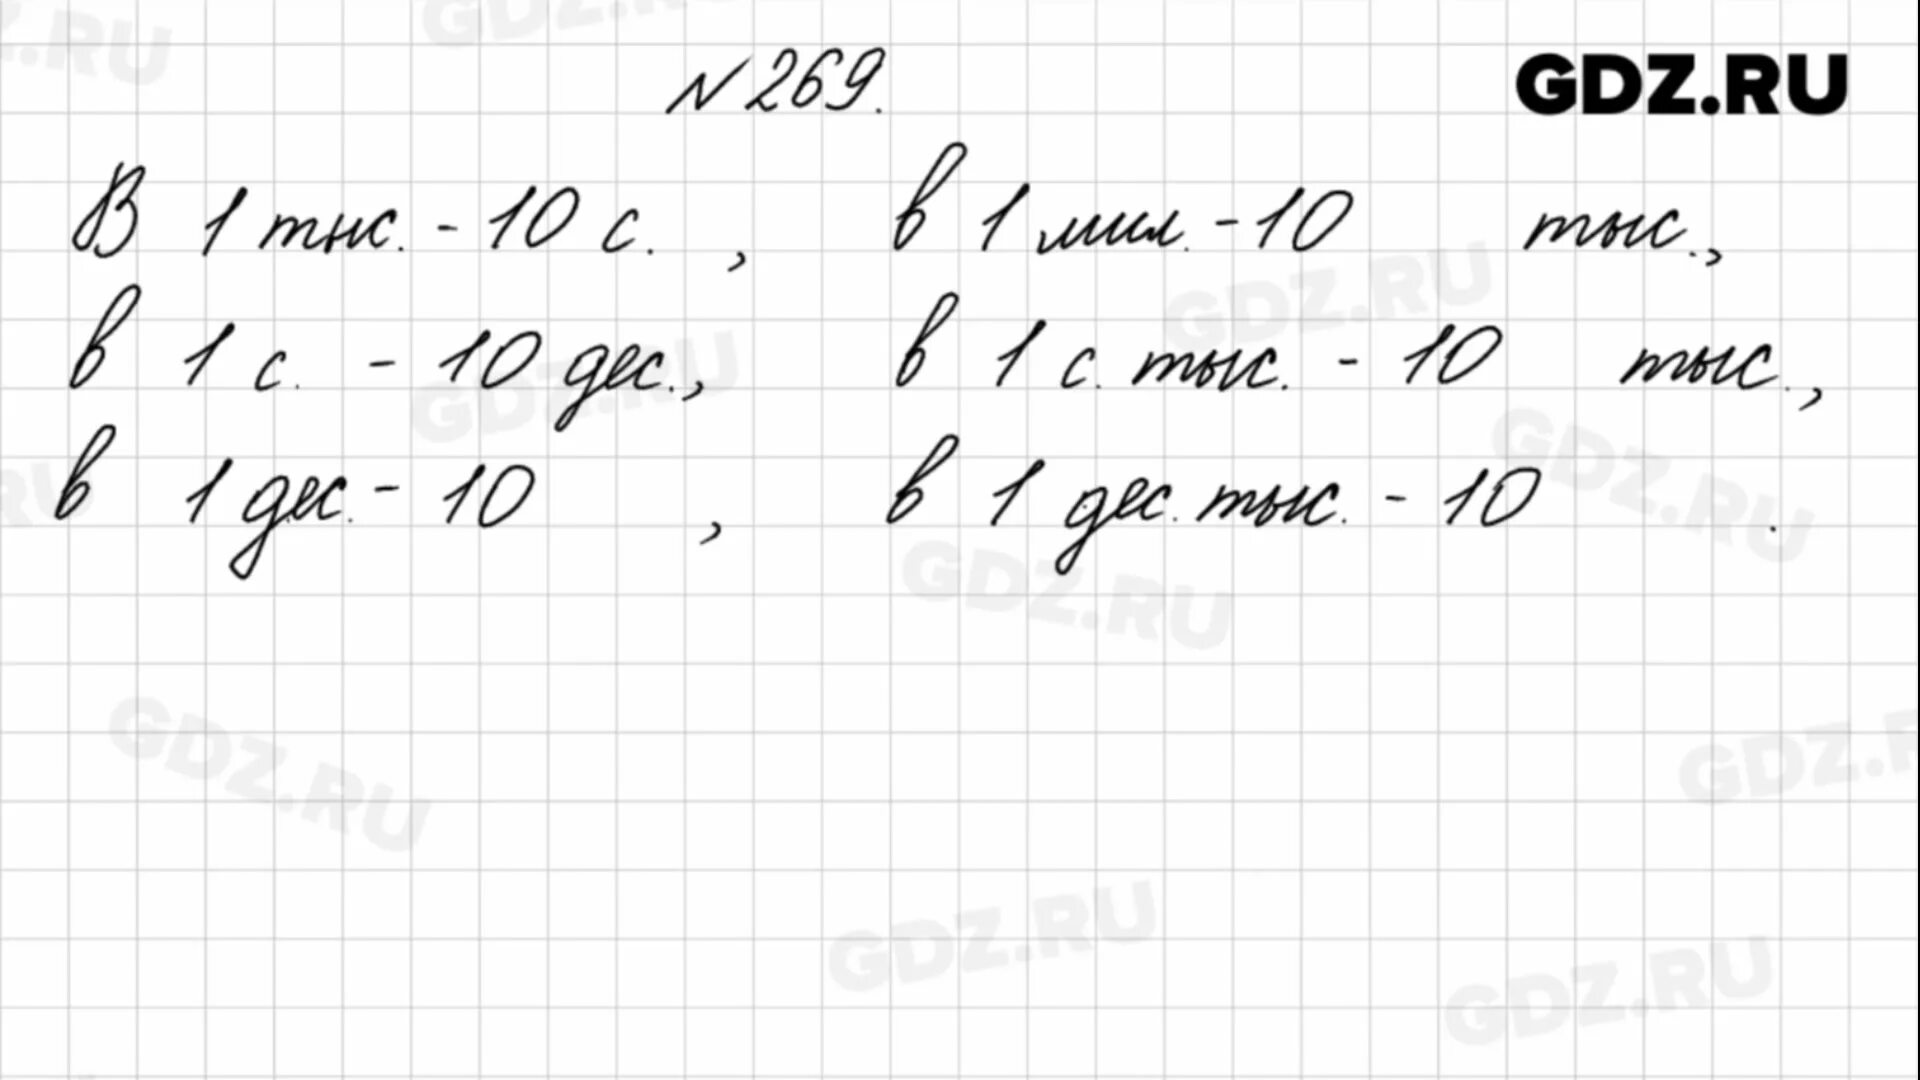 № 269.
GDZ.RU
В 1 тыс. - 10 с. , в 1 мил. - 10 тыс.,
в 1 с. - 10 дес., в 1 с. тыс. - 10 тыс.,
в 1 дес. - 10 , в 1 дес. тыс. - 10 .